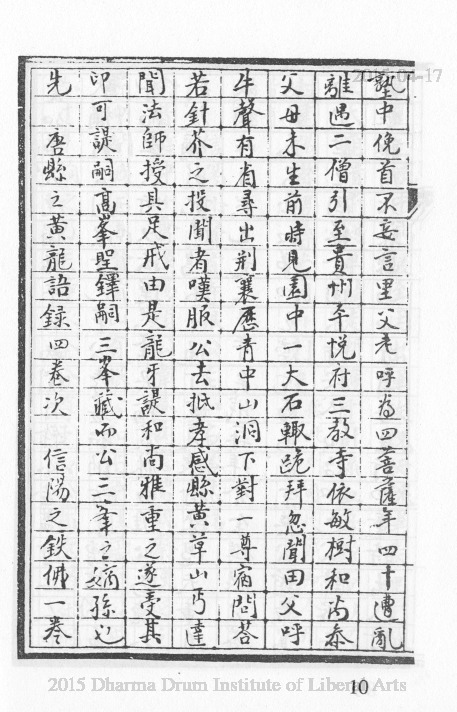 塾中俛首不妄言里父老呼为四菩薩年四十遭亂
離遇二僧引至貴州平悦府三教寺依敏樹和尚叅
父母未生前時見園中一大石輙跪拜忽聞田父呼
牛聲有省尋出荆襄歷青中山洞下對一尊宿問荅
若針芥之投聞者嘆服公去抵孝感縣黄草山丐達
聞法師授具足戒由是龍牙諟和尚雅重之遂受其
印可諟嗣髙峯聖鐸嗣三峯藏而公三峯之嫡孫也
先唐縣之黄龍語録四卷次信陽之鉄佛一卷
10
2015 Dharma Drum Institute of Liberal Arts